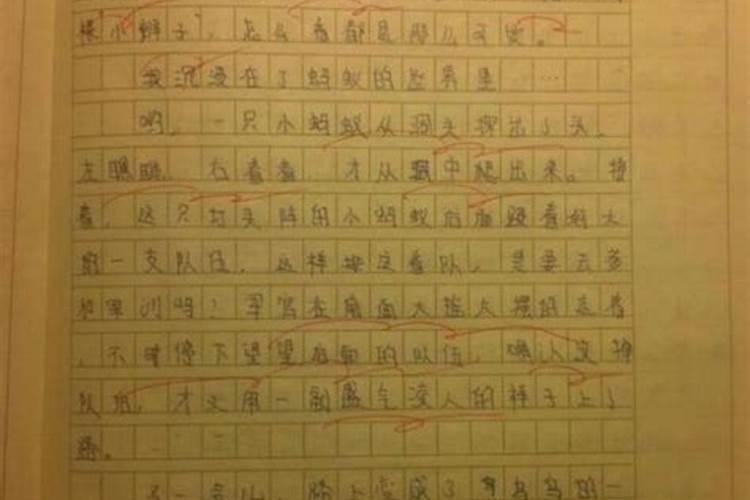 根小辫子”，怎么看都是那么可爱。
我沉浸在了蚂蚁的世界里……
哟，一只小蚂蚁从洞头探出了头，
左瞧瞧，右看看，才从洞中爬出来。接
着，这只打头阵的小蚂蚁后面跟着好大
的一支队伍，这样排着队，是要去参
加军训吗？军官在前面大摇大摆的走着
，不时停下望望后面的队伍，确认没掉
队后，才又用一副盛气凌人的样子上了
路。
不一会儿，路上变成了